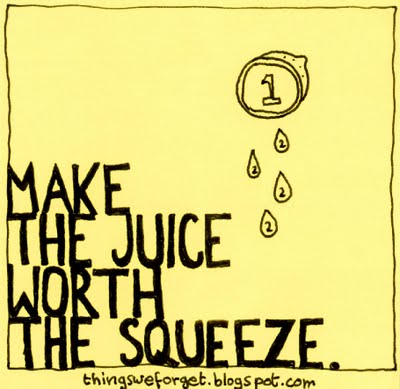 1
2
2
2
2
MAKE
THE JUICE
WORTH
THE SQUEEZE.
thingsweforget.blogspot.com